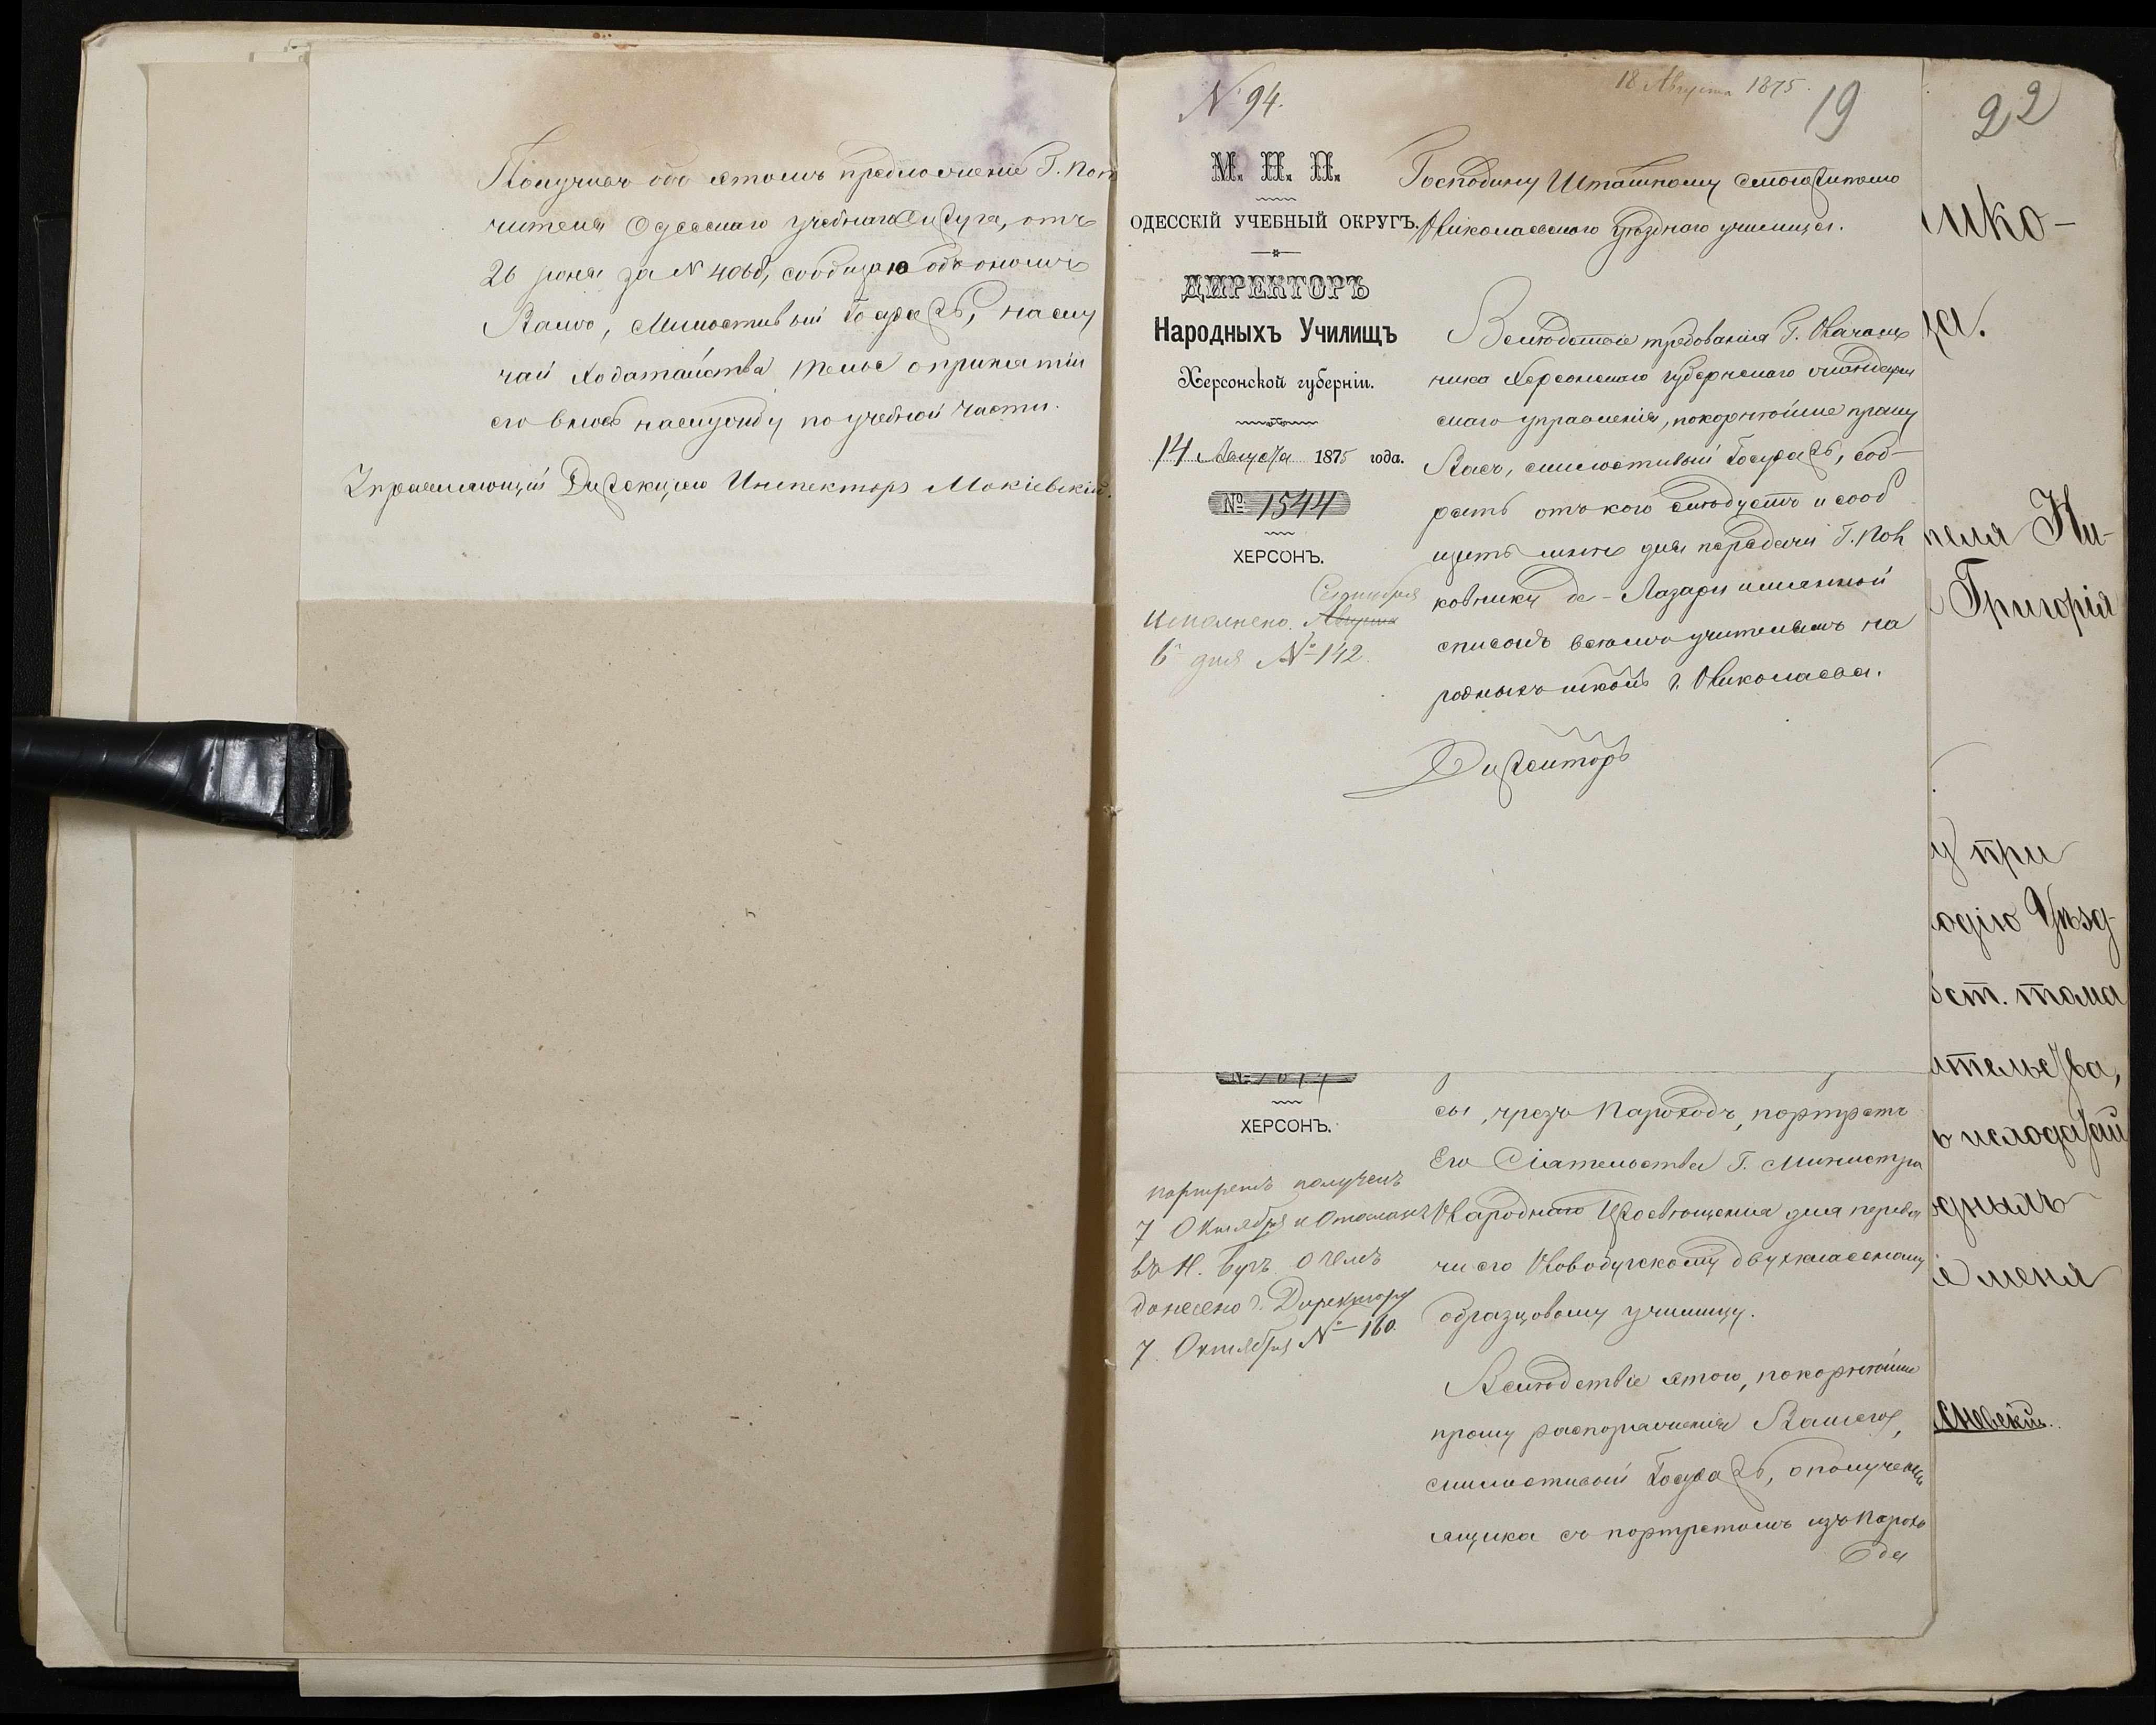 Получивъ объ этомъ предложеніе Г. Попе
чителя Одесскаго учебнаго Округа, отъ
26 Іюня за № 4068, сообщаю объ ономъ
Вамъ, Милостивый Государь, на слу
чай ходатайства о принятіи
его вновь на службу по учебной части.
Управляющій Дирекціею Инспекторъ Мокіевскій.
№ 94.
18 Августа 1875.
19
М. Н. П.
ОДЕССКІЙ УЧЕБНЫЙ ОКРУГЪ.
ДИРЕКТОРЪ
Народныхъ Училищъ
Херсонской губерніи.
14 Августа 1875 года.
№ 1544
ХЕРСОНЪ.
Сентября
Исполнено. Августа
6 дня № 142.
Господину Штатному Смотрителю
Николаевскаго уѣзднаго училища.
Вслѣдствіе требованія Г. Началь
ника Херсонскаго губернскаго жандарм
скаго управленія, покорнѣйше прошу
Васъ, милостивый Государь, соб-
рать отъ кого слѣдуетъ и сооб
щить мнѣ для передачи Г. Пол
ковнику де-Лазари именной
списокъ всѣмъ учителямъ на
родныхъ школъ г. Николаева.
Директоръ
ХЕРСОНЪ.
Портретъ полученъ
7 Октября и отосланъ
въ Н. Бугъ о чемъ
донесено г. Директору
7 Октября № 160.
сы, чрезъ Пароходъ, портретъ
Его Сіятельства Г. Министра
Народнаго Просвѣщенія для переда
чи его Новобугскому двухклассному
образцовому училищу.
Вслѣдствіе этого, покорнѣйше
прошу распоряженія Вашего,
милостивый Государь, о полученіи
ящика съ портретомъ изъ Парохо
да
22
ико-
ца.
теля Ни-
Григорія
у при
одію Уѣзд-
ст. тома
ательства,
ь исходатай
однымъ
меня